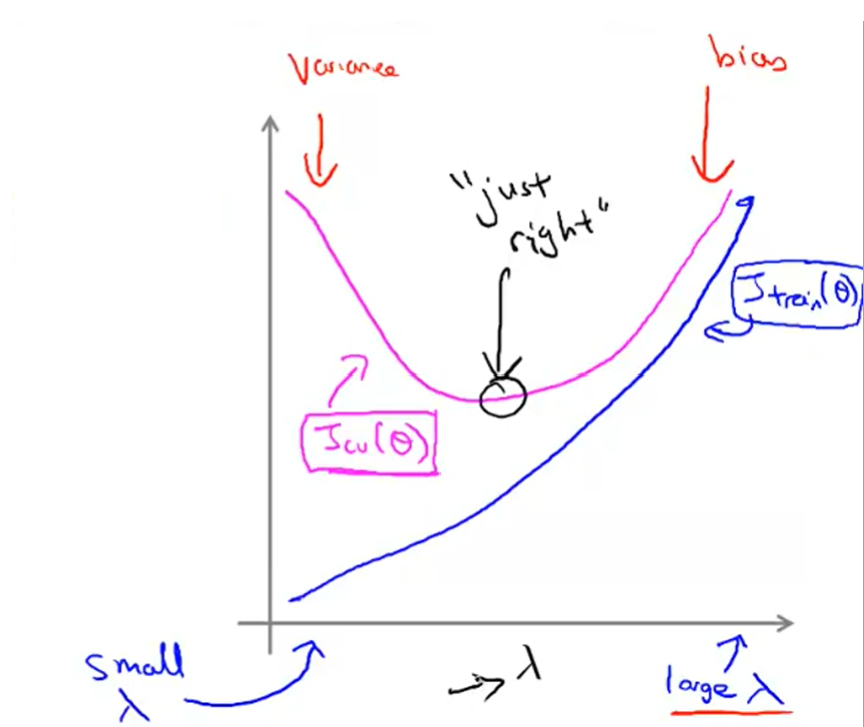 Variance
bias
"just
right"
J train(θ)
J cv(θ)
small
λ
λ
large λ